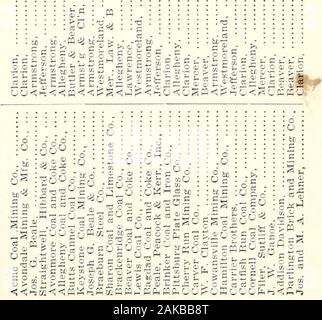 Acme Coal Mining Co., Clarion,
Avondale Mining & Mfg. Co., Clarion,
Jos. G. Beale, Armstrong,
Hibbard & Co., Jefferson,
Avonmore Coal and Coke Co., Armstrong,
Allegheny Coal and Coke Co., Allegheny,
Butts Cannel Coal Co., Butler & Beaver,
Keystone Coal Mining Co., Armst'g & Cl'n,
Joseph G. Beale & Co., Armstrong,
Braeburn Steel Co., Westmoreland,
Sharon Coal and Limestone Co., Mer., Law. & B
Brackenridge Coal Co., Allegheny,
Beaver Coal and Coke Co., Lawrence,
Lewis Coal Co., Westmoreland,
Bagdad Coal and Coke Co., Armstrong,
Peale, Peacock & Kerr, Inc., Jefferson,
Brinker Coal and Iron Co., Clarion,
Pittsburg Plate Glass Co., Allegheny,
Cherry Run Mining Co., Clarion,
Carver Coal Co., Mercer,
W. F. Clayton, Beaver,
Cowansville Mining Co., Armstrong,
Hamilton Coal Mining Co., Westmoreland,
Carrier Brothers, Jefferson,
Catfish Coal Co., Clarion,
Cornell Coal Company, Allegheny,
Filer, Sutliff & Co., Mercer,
J. W. Ganoe, Clarion,
Addison Davidson, Beaver,
Darlington Brick and Mining Co., Beaver,
Jos. and M. A. Lehner, Clarion,
alamy
Image ID: 2AKBB8T
www.alamy.com